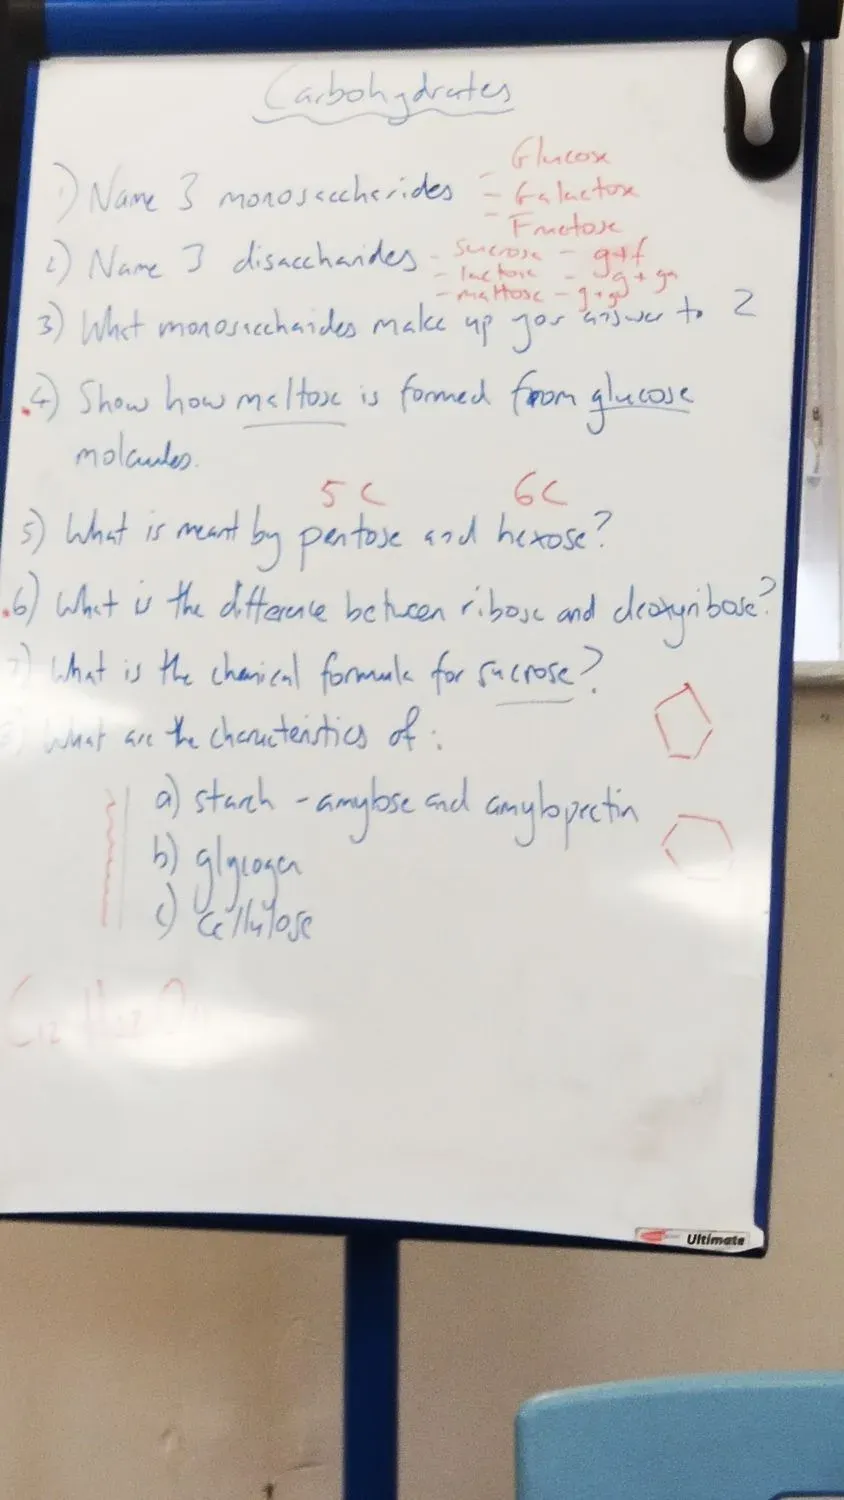 Carbohydrates
1) Name 3 monosaccharides - Glucose
- Galactose
- Fructose
2) Name 3 disaccharides - Sucrose - g+f
- lactose - g + ga
- maltose - g+g
3) What monosaccharides make up your answer to 2
4) Show how maltose is formed from glucose
molecules.
5C 6C
5) What is meant by pentose and hexose?
6) What is the difference between ribose and deoxyribose?
7) What is the chemical formula for sucrose?
What are the characteristics of:
a) starch - amylose and amylopectin
b) glycogen
c) cellulose
Ultimate